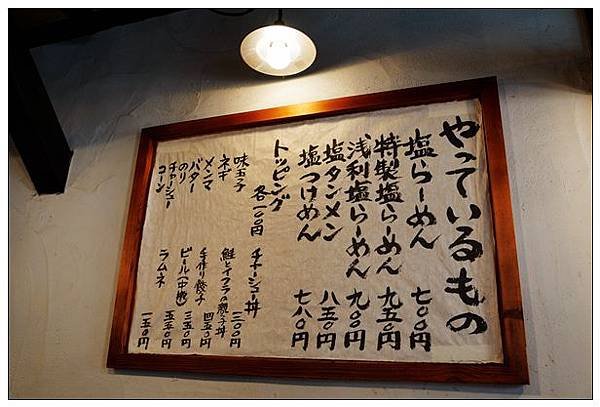 やっているもの
塩らーめん 七〇〇円
特製塩らーめん 九五〇円
浅利塩らーめん 九〇〇円
塩タンメン 八五〇円
塩つけめん 七八〇円
トッピング
各一〇〇円
味玉子
ネギ
メンマ
バター
のり
チャーシュー
コーン
チャーシュー丼 三〇〇円
鮭とイクラの親子丼 四五〇円
手作り餃子 三五〇円
ビール(中瓶) 五五〇円
ラムネ 一五〇円